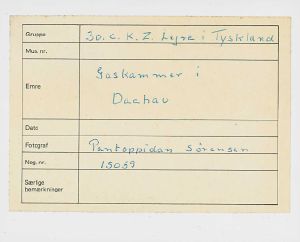 Gruppe 30.c. K.Z. Lejre i Tyskland
Mus. nr.
Emne Gaskammer i
Dachau
Dato
Fotograf Pantoppidan Sørensen
Neg. nr. 15059
Særlige
bemærkninger